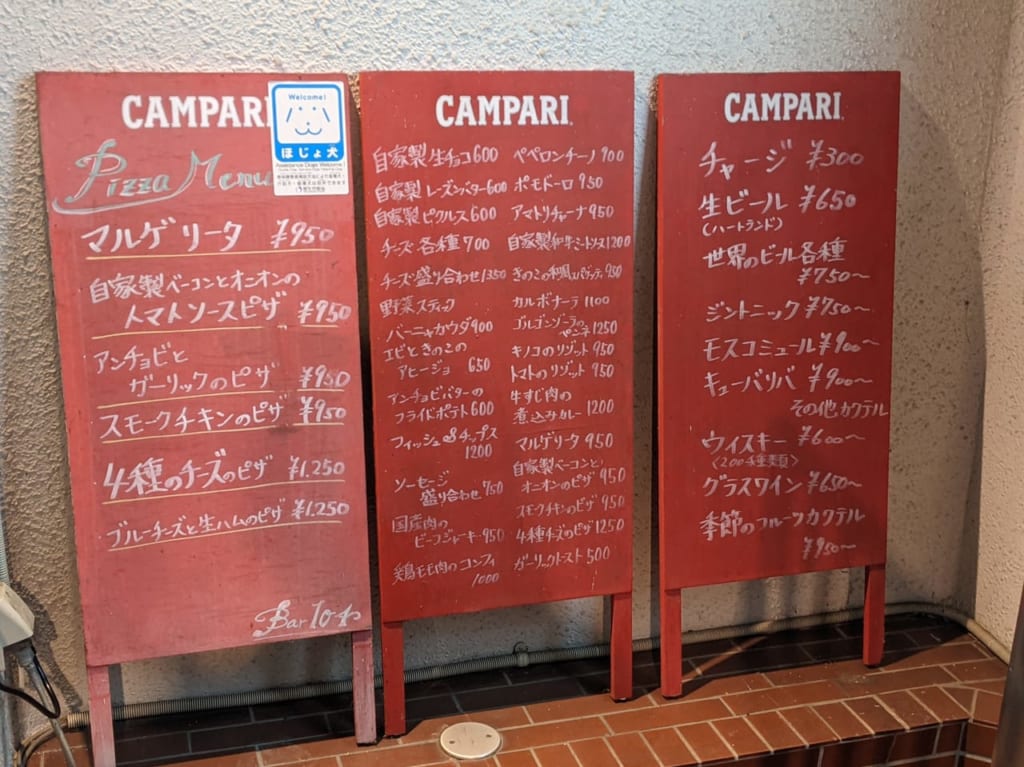 CAMPARI
Welcome!
ほじょ犬
Assistance Dogs Welcome!
Pizza Menu
マルゲリータ ¥950
自家製ベーコンとオニオンの
トマトソースピザ ¥950
アンチョビと
ガーリックのピザ ¥950
スモークチキンのピザ ¥950
4種のチーズのピザ ¥1.250
ブルーチーズと生ハムのピザ ¥1.250
Bar
CAMPARI
自家製生チョコ600
自家製レーズンバター600
自家製ピクルス600
チーズ各種700
チーズ盛り合わせ1350
野菜スティック
バーニャカウダ900
エビときのこの
アヒージョ 650
アンチョビバターの
フライドポテト600
フィッシュ&チップス
1200
ソーセージ
盛り合わせ750
国産肉の
ビーフジャーキー950
鶏モモ肉のコンフィ
1000
ペペロンチーノ900
ポモドーロ950
アマトリチャーナ950
自家製和牛ミートソース1200
きのこの和風スパゲッティ950
カルボナーラ1100
ゴルゴンゾーラの
ペンネ1250
キノコのリゾット950
トマトのリゾット950
牛すじ肉の
煮込みカレー1200
マルゲリータ950
自家製ベーコンと
オニオンのピザ950
スモークチキンのピザ950
4種チーズのピザ1250
ガーリックトースト500
CAMPARI
チャージ ¥300
生ビール ¥650
(ハートランド)
世界のビール各種
¥750〜
ジントニック¥750〜
モスコミュール¥900〜
キューバリバ ¥900〜
その他カクテル
ウィスキー ¥600〜
〈200種類〉
グラスワイン¥650〜
季節のフルーツカクテル
¥950〜